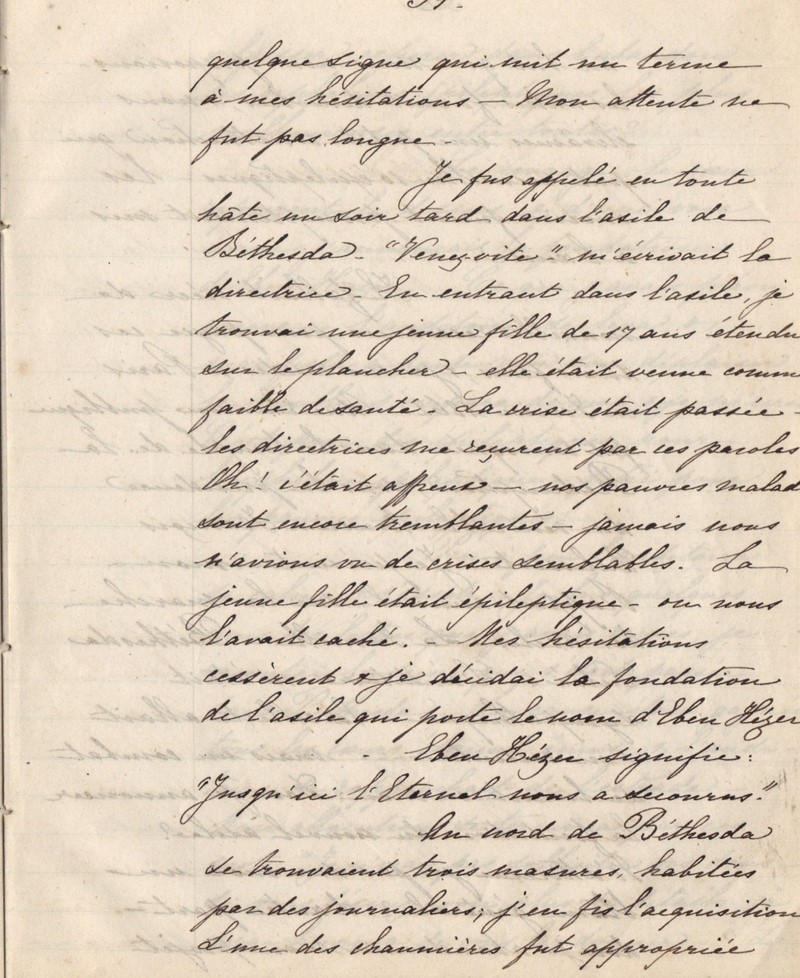 quelque signe qui mit un terme
à mes hésitations — Mon attente ne
fut pas longue -
Je fus appelé en toute
hâte un soir tard dans l'asile de
Béthesda - "Venez vite" m'écrivait la
directrice - En entrant dans l'asile, je
trouvai une jeune fille de 17 ans étendu
sur le plancher - elle était venue comm
faible de santé - La crise était passée -
les directrices me reçurent par ces paroles
Oh! c'était affreux — nos pauvres malad
sont encore tremblantes — jamais nous
n'avions vu de crises semblables. La
jeune fille était épileptique - on nous
l'avait caché. - Mes hésitations
cessèrent & je décidai la fondation
de l'asile qui porte le nom d'Eben Hézer
- Eben Hézer signifie:
"Jusqu'ici l'Eternel nous a secourus."
Au nord de Béthesda
se trouvaient trois masures, habitées
par des journaliers; j'en fis l'acquisition
L'une des chaumières fut appropriée